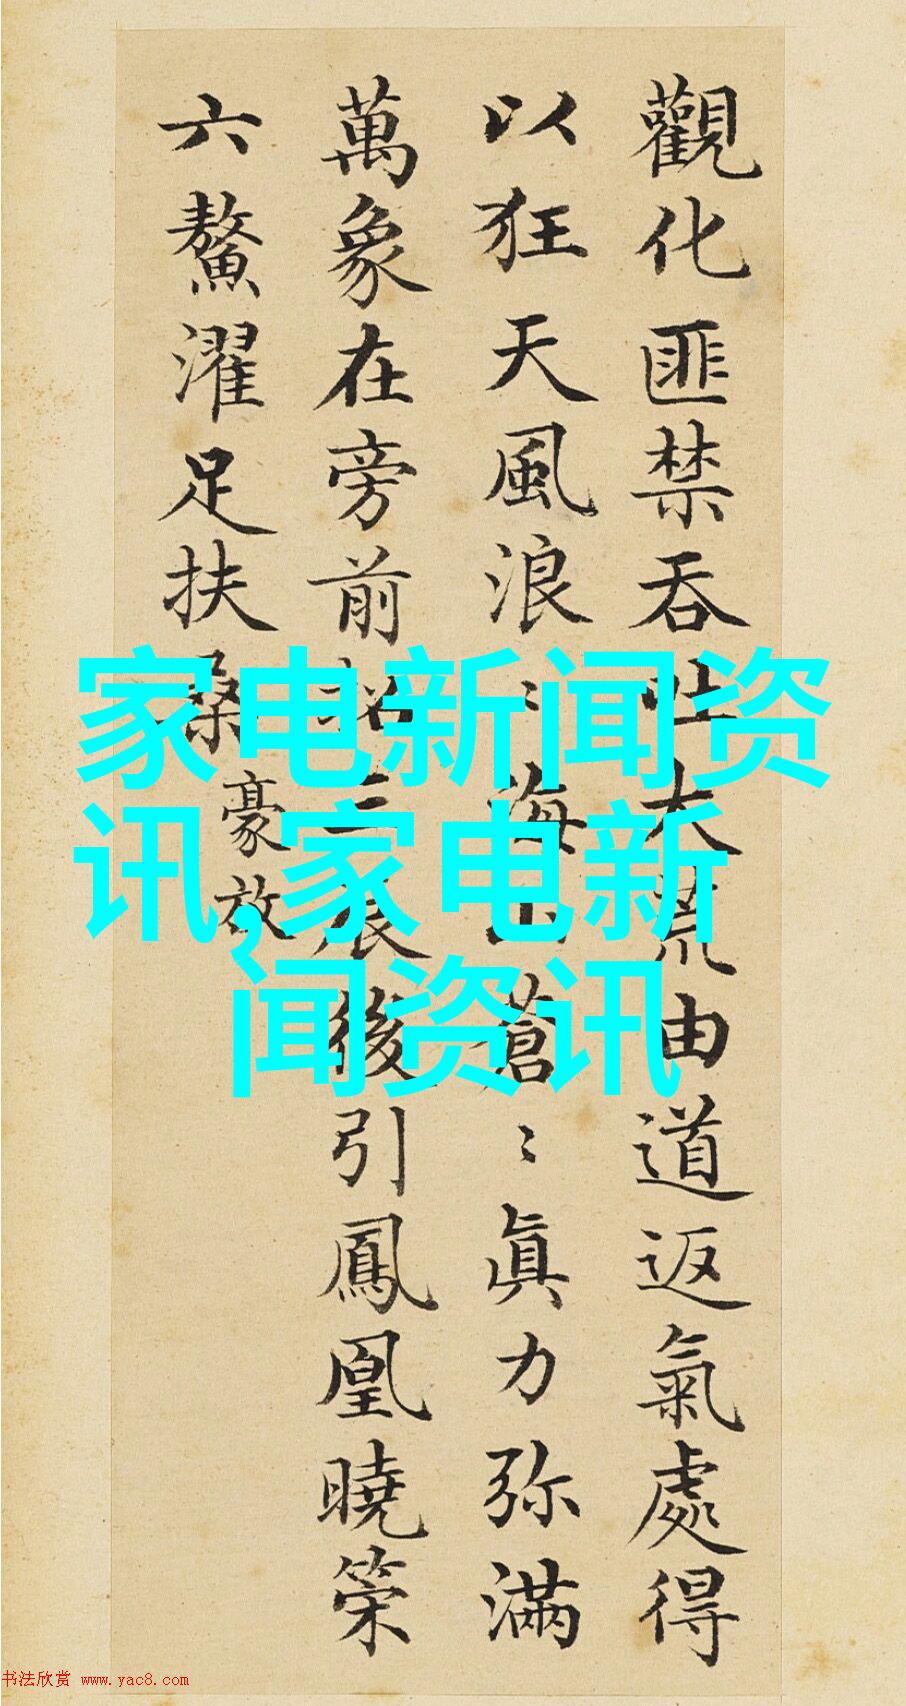 觀化匪禁吞吐大荒由道返氣處得
以狂天風浪〻海山蒼〻眞力弥滿
萬象在旁前招三辰後引鳳凰曉策
六鰲濯足扶桑
豪放
家电新闻资
讯,家电新
闻资讯
书法欣赏 www.yac8.com